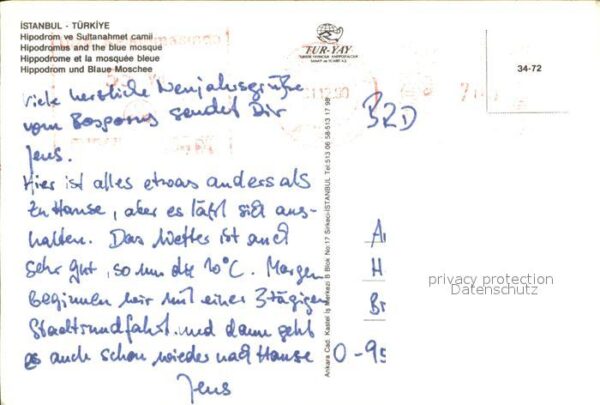 İSTANBUL - TÜRKİYE
Hipodrom ve Sultanahmet camii
Hipodrombs and the blue mosque
Hippodrome et la mosquée bleue
Hippodrom und Blaue Moschee
TUR-YAY
34-72
Viele herzliche Neujahrsgrüße
vom Bosporus sendet Dir
Jens.
Hier ist alles etwas anders als
zu Hause, aber es läßt sich aus-
halten. Das Wetter ist auch
sehr gut, so um die 10°C. Morgen
beginnen wir mit einer 3tägigen
Stadtrundfahrt und dann geht
es auch schon wieder nach Hause
Jens
Ankara Cad. Kastel İş Merkezi B Blok No:17 Sirkeci-İSTANBUL Tel:513 06 58-513 17 98
BRD
A
H
Br
0-95
privacy protection
Datenschutz